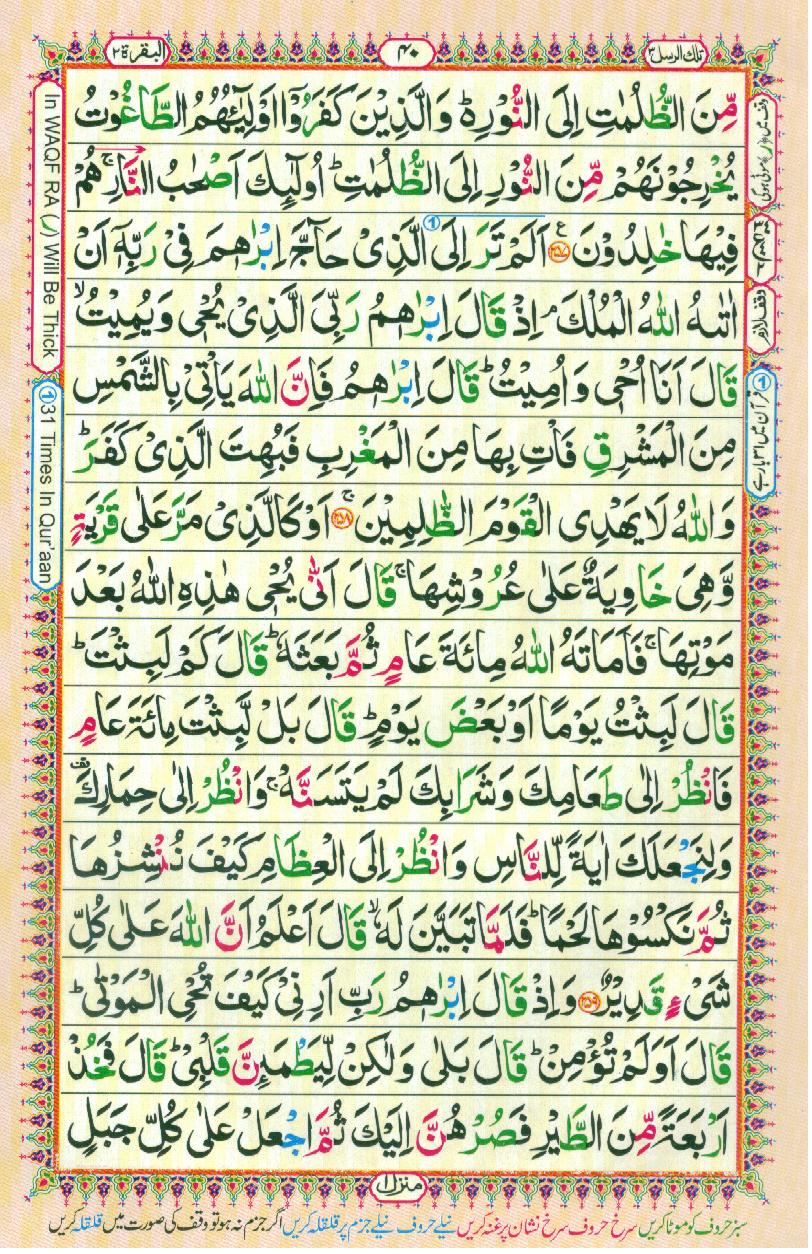 تلك الرسل ٣
۴۰
البقرة ٢
مِّنَ الظُّلُمٰتِ اِلَى النُّوْرِ۬ؕ وَالَّذِيْنَ كَفَرُوْۤا اَوْلِيٰٓئُهُمُ الطَّاغُوْتُ
يُخْرِجُوْنَهُمْ مِّنَ النُّوْرِ اِلَى الظُّلُمٰتِؕ اُولٰٓئِكَ اَصْحٰبُ النَّارِۚ هُمْ
فِيْهَا خٰلِدُوْنَ ﴿۲۵۷﴾ اَلَمْ تَرَ اِلَى الَّذِيْ حَآجَّ اِبْرٰهٖمَ فِيْ رَبِّهٖۤ اَنْ
اٰتٰىهُ اللّٰهُ الْمُلْكَۘ اِذْ قَالَ اِبْرٰهٖمُ رَبِّيَ الَّذِيْ يُحْيٖ وَيُمِيْتُۙ
قَالَ اَنَا اُحْيٖ وَاُمِيْتُؕ قَالَ اِبْرٰهٖمُ فَاِنَّ اللّٰهَ يَاْتِيْ بِالشَّمْسِ
مِنَ الْمَشْرِقِ فَاْتِ بِهَا مِنَ الْمَغْرِبِ فَبُهِتَ الَّذِيْ كَفَرَؕ
وَاللّٰهُ لَا يَهْدِي الْقَوْمَ الظّٰلِمِيْنَۚ ﴿۲۵۸﴾ اَوْ كَالَّذِيْ مَرَّ عَلٰى قَرْيَةٍ
وَّهِيَ خَاوِيَةٌ عَلٰى عُرُوْشِهَاۚ قَالَ اَنّٰى يُحْيٖ هٰذِهِ اللّٰهُ بَعْدَ
مَوْتِهَاۚ فَاَمَاتَهُ اللّٰهُ مِائَةَ عَامٍ ثُمَّ بَعَثَهٗؕ قَالَ كَمْ لَبِثْتَؕ
قَالَ لَبِثْتُ يَوْمًا اَوْ بَعْضَ يَوْمٍؕ قَالَ بَلْ لَّبِثْتَ مِائَةَ عَامٍ
فَانْظُرْ اِلٰى طَعَامِكَ وَشَرَابِكَ لَمْ يَتَسَنَّهْۚ وَانْظُرْ اِلٰى حِمَارِكَ
وَلِنَجْعَلَكَ اٰيَةً لِّلنَّاسِ وَانْظُرْ اِلَى الْعِظَامِ كَيْفَ نُنْشِزُهَا
ثُمَّ نَكْسُوْهَا لَحْمًاؕ فَلَمَّا تَبَيَّنَ لَهٗۙ قَالَ اَعْلَمُ اَنَّ اللّٰهَ عَلٰى كُلِّ
شَيْءٍ قَدِيْرٌ ﴿۲۵۹﴾ وَاِذْ قَالَ اِبْرٰهٖمُ رَبِّ اَرِنِيْ كَيْفَ تُحْيِ الْمَوْتٰىؕ
قَالَ اَوَلَمْ تُؤْمِنْؕ قَالَ بَلٰى وَلٰكِنْ لِّيَطْمَئِنَّ قَلْبِيْؕ قَالَ فَخُذْ
اَرْبَعَةً مِّنَ الطَّيْرِ فَصُرْهُنَّ اِلَيْكَ ثُمَّ اجْعَلْ عَلٰى كُلِّ جَبَلٍ
منزل ۱
سبز حروف کو موٹا کریں سرخ حروف سرخ نشان پر غنہ کریں نیلے حروف نیلے جزم پر قلقلہ کریں اگر جزم نہ ہو تو وقف کی صورت میں قلقلہ کریں
In WAQF RA (ر) Will Be Thick
① 31 Times In Qur'aan
وقف لازم